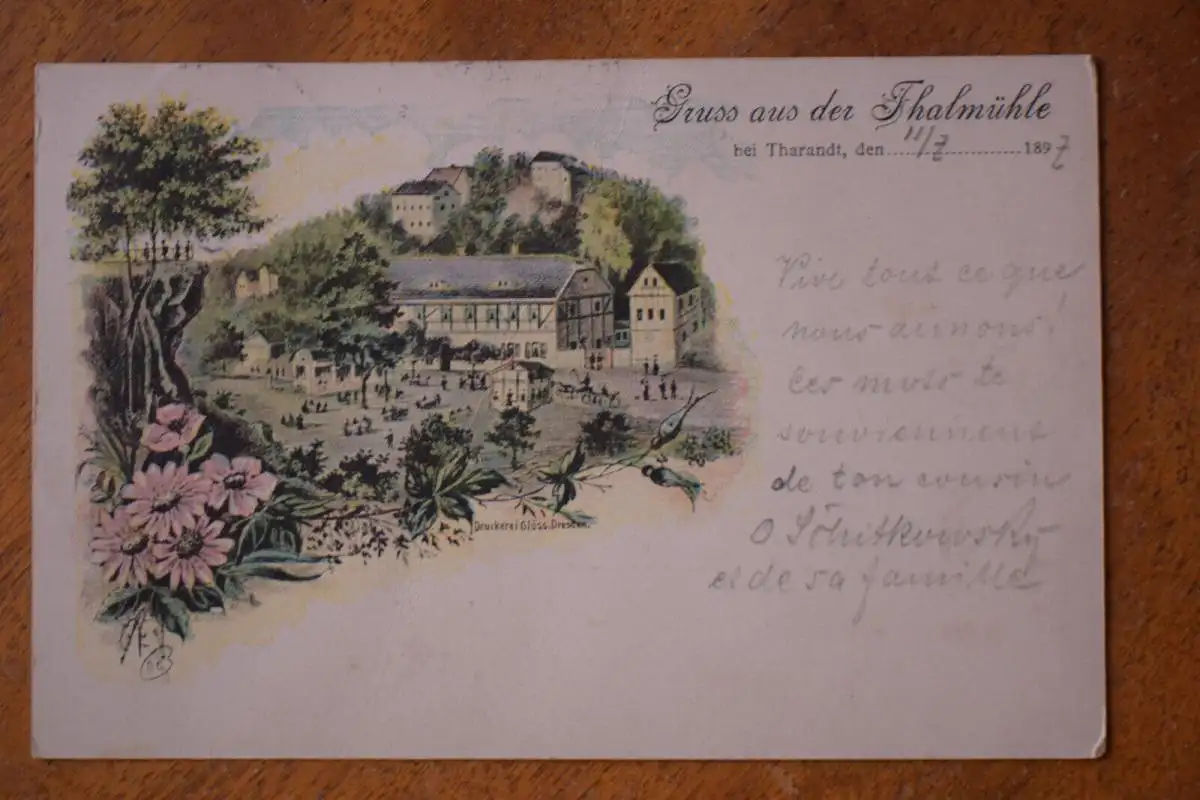 Gruss aus der Thalmühle
bei Tharandt, den 11/7 1897
Vive tout ce que
nous aimons!
Ces mots te
souviennent
de ton cousin
O
et de sa famille
Druckerei Glöss. Dresden.